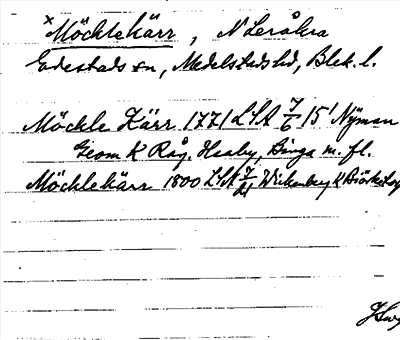 × Möcklekärr, N Leråkra
Edestads sn, Medelstads hd, Blek. l.
Möckle Kärr 1771 LSA 7/6 15 Nyman
Geom K Råg. Haaby, Binga m. fl.
Möcklekärr 1800 LSA Wickenberg K